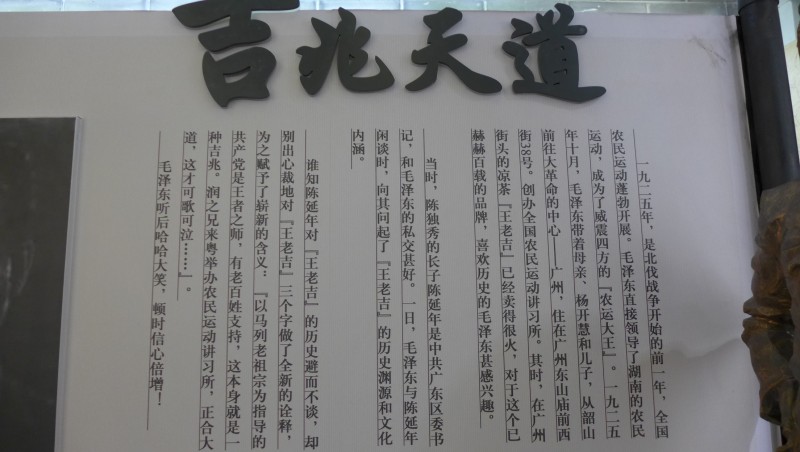 吉兆天道
一九二五年，是北伐战争开始的前一年，全国
农民运动蓬勃开展。毛泽东直接领导了湖南的农民
运动，成为了威震四方的『农运大王』。一九二五
年十月，毛泽东带着母亲、杨开慧和儿子，从韶山
前往大革命的中心——广州，住在广州东山庙前西
街38号。创办全国农民运动讲习所。其时，在广州
街头的凉茶『王老吉』已经卖得很火，对于这个已
赫赫百载的品牌，喜欢历史的毛泽东甚感兴趣。
当时，陈独秀的长子陈延年是中共广东区委书
记，和毛泽东的私交甚好。一日，毛泽东与陈延年
闲谈时，向其问起了『王老吉』的历史渊源和文化
内涵。
谁知陈延年对『王老吉』的历史避而不谈，却
别出心裁地对『王老吉』三个字做了全新的诠释，
为之赋予了崭新的含义：『以马列老祖宗为指导的
共产党是王者之师，有老百姓支持，这本身就是一
种吉兆。润之兄来粤举办农民运动讲习所，正合大
道，这才可歌可泣……』。
毛泽东听后哈哈大笑，顿时信心倍增！